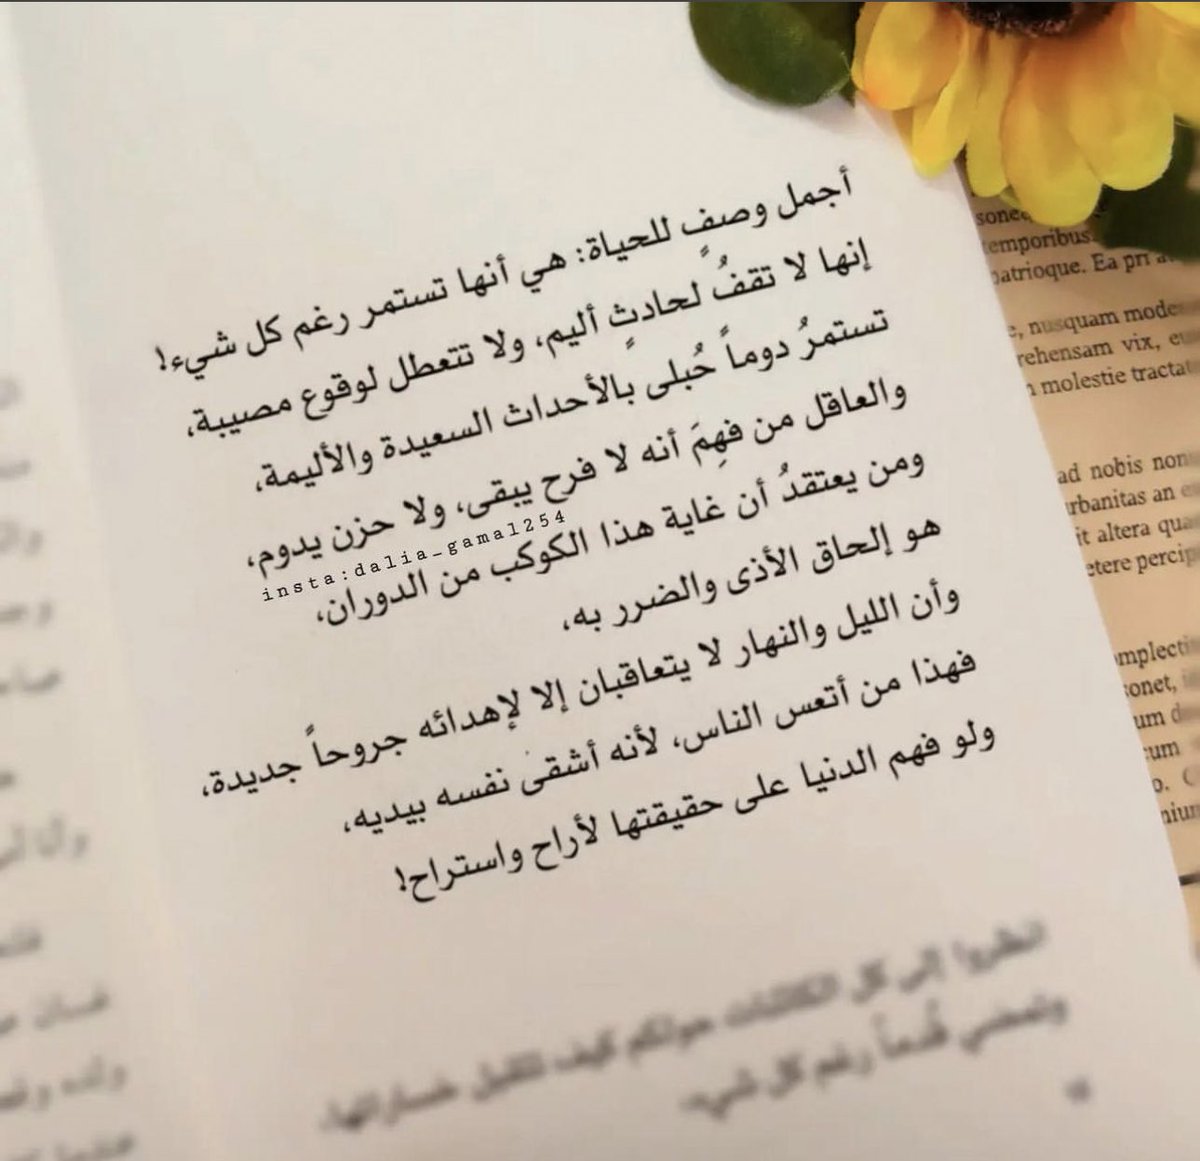 أجمل وصفٍ للحياة: هي أنها تستمر رغم كل شيء!
إنها لا تقفُ لحادثٍ أليم، ولا تتعطل لوقوع مصيبة،
تستمرُ دوماً حُبلى بالأحداث السعيدة والأليمة،
والعاقل من فهِمَ أنه لا فرح يبقى، ولا حزن يدوم،
insta:dalia_gamal254
ومن يعتقدُ أن غاية هذا الكوكب من الدوران،
هو إلحاق الأذى والضرر به،
وأن الليل والنهار لا يتعاقبان إلا لإهدائه جروحاً جديدة،
فهذا من أتعس الناس، لأنه أشقى نفسه بيديه،
ولو فهم الدنيا على حقيقتها لأراح واستراح!
انظروا إلى كل الكائنات حولكم كيف تتقبل خساراتها،
وتمضي قُدماً رغم كل شيء
temporibus.
patrioque. Ea pri
nusquam mode
rehensam vix,
molestie tractat
ad nobis non
urbanitas an
it altera qua
etere percip
omplecti
onet,
um d